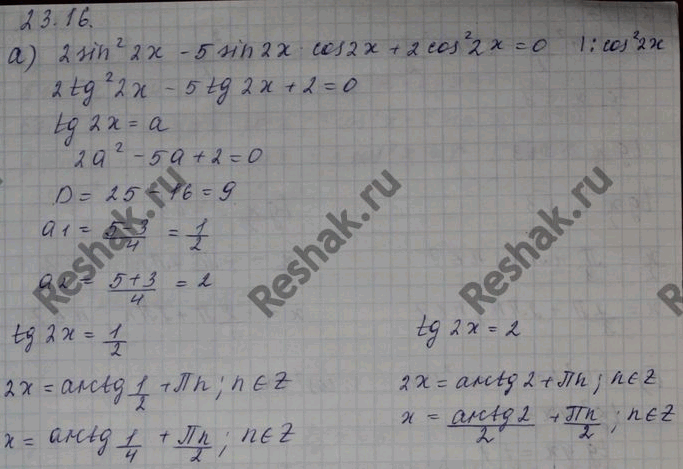 23.16.
а) 2sin² 2x - 5 sin2x · cos2x + 2 cos² 2x = 0 |: cos² 2x
2tg² 2x - 5 tg 2x + 2 = 0
tg 2x = a
2a² - 5a + 2 = 0
D = 25 - 16 = 9
a1 = (5-3)/4 = 1/2
a2 = (5+3)/4 = 2
tg 2x = 1/2
2x = arctg 1/2 + Πn; n∈Z
x = arctg 1/4 + Πn/2; n∈Z
tg 2x = 2
2x = arctg 2 + Πn; n∈Z
x = arctg 2/2 + Πn/2; n∈Z
Reshak.ru
Reshak.ru
Reshak.ru